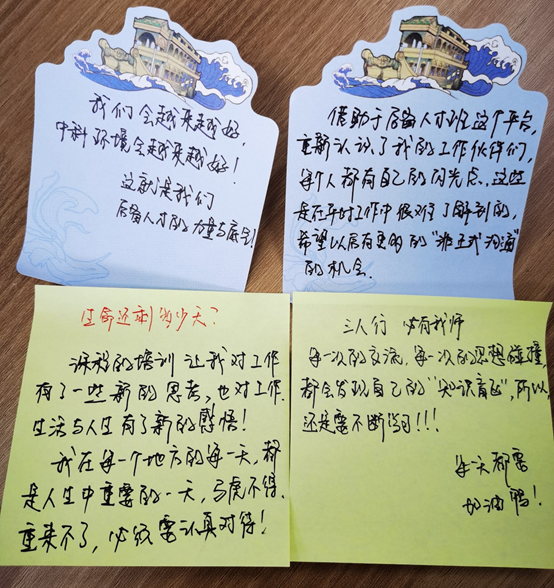 我们会越来越好，
中科环境会越来越好！
这就是我们
后备人才的力量与底气！
借助于后备人才班这个平台，
重新认识了我的工作伙伴们，
每个人都有自己的闪光点、这些
是在平时工作中很难了解到的，
希望以后有更多的“非正式沟通”
的机会.
生命还剩多少天？
课程的培训让我对工作
有了一些新的思考，也对工作、
生活与人生有了新的感悟！
我在每一个地方的每一天，都
是人生中重要的一天，马虎不得、
重来不了，必须要认真对待！
三人行 必有我师
每一次的交流，每一次的思想碰撞，
都会发现自己的“知识盲区”，所以，
还是要不断学习！！！
每一天都要
加油鸭！